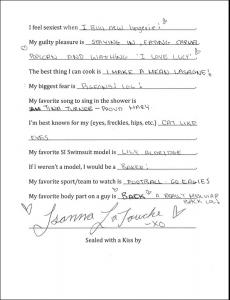 I feel sexiest when I BUY NEW lingerie!
My guilty pleasure is STAYING IN, EATING CARMEL
POPCORN AND WATCHING 'I LOVE LUCY'.
The best thing I can cook is I MAKE A MEAN LASAGNE!
My biggest fear is
My favorite song to sing in the shower is
TINA TURNER - PROUD MARY.
I'm best known for my (eyes, freckles, hips, etc.) CAT LIKE
EYES
My favorite SI Swimsuit model is LILY ALDRIDGE
If I weren't a model, I would be a BAKER!
My favorite sport/team to watch is FOOTBALL - GO EAGLES
My favorite body part on a guy is BACK A REALLY MUSCULAR
BACK
Joanna La Touche
-XO
Sealed with a Kiss by